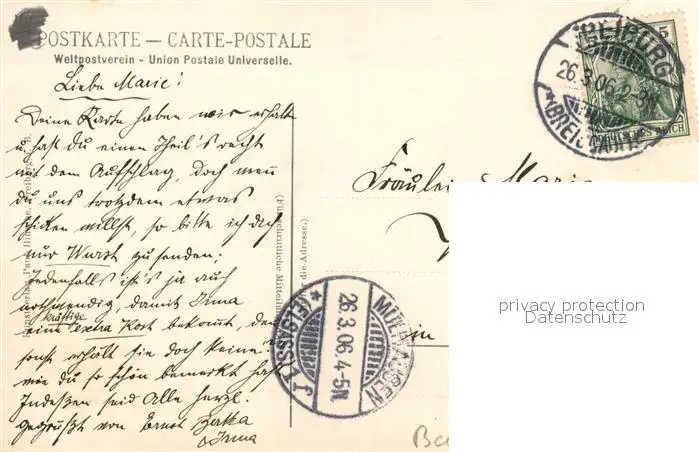 POSTKARTE — CARTE-POSTALE
Weltpostverein - Union Postale Universelle.
Liebe Marie!
Deine Karte haben wir erhalten
u. hast du einen Theil's recht
mit dem Aufschlag, doch wenn
du uns trotzdem etwas
schicken willst, so bitte ich dich
nur Wurst zu senden;
Jedenfalls ist's ja auch
nothwendig, damit Irma
kräftige
eine extra Kost bekommt, denn
sonst erhält sie doch keine!
wie du so schön bemerkt hast
Indessen seid Alle herzl.
gegrüßt von Ernst Berta
u. Irma
Fräulein Marie
in
(Für schriftliche Mitteilungen)
die Adresse.)
FREIBURG
26.3.06. 2-3N.
(BREISGAU)
5
DEUTSCHES REICH
MÜLHAUSEN
26.3.06. 4-5N.
(ELSASS)
privacy protection
Datenschutz